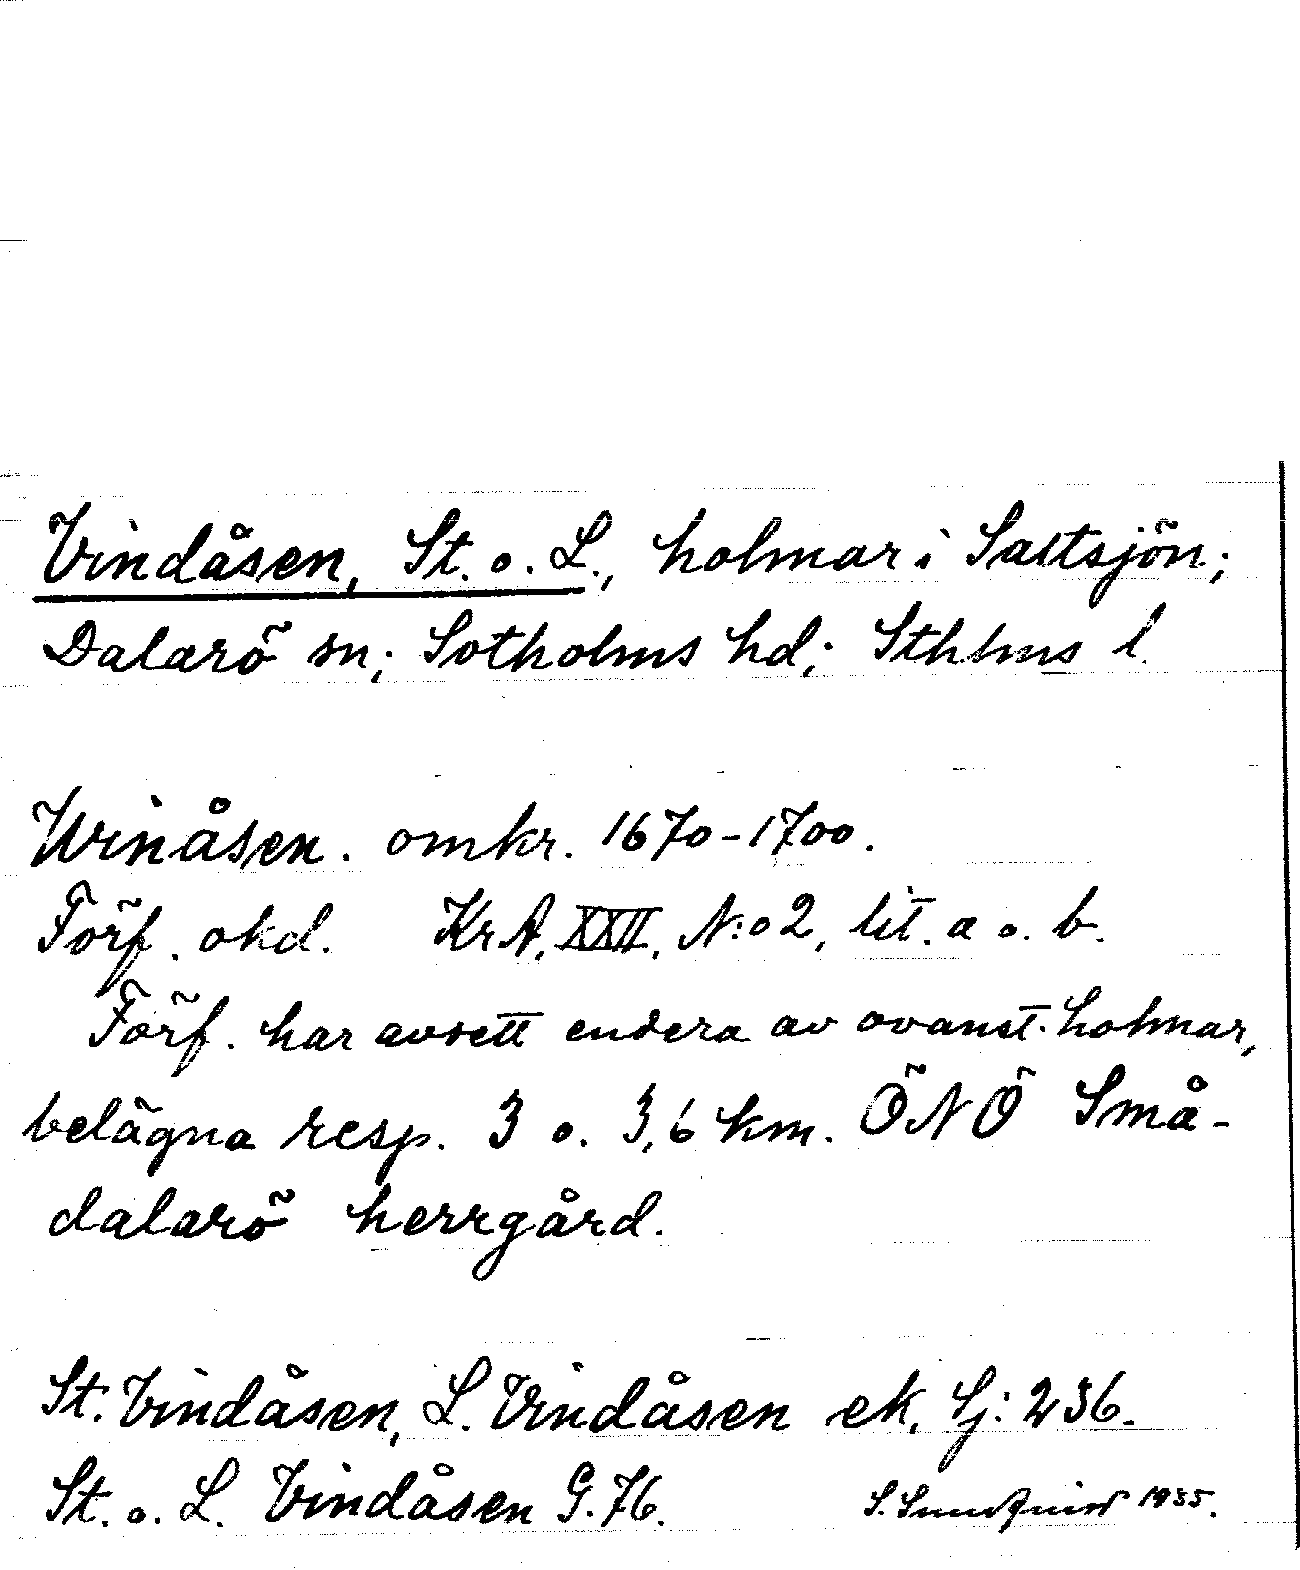 Vindåsen, St. o. L., holmar i Saltsjön;
Dalarö sn; Sotholms hd; Sthlms l.
Winåsen. omkr. 1670-1700.
Förf. okd. KrA, XXII, N:o 2, lit. a o. b.
Förf. har avsett endera av ovanst. holmar,
belägna resp. 3 o. 3,6 km. ÖNÖ Små-
dalarö herrgård.
St. Vindåsen, L. Vindåsen ek. Sj: 236.
St. o. L. Vindåsen G. 76. S. Sundquist 1935.